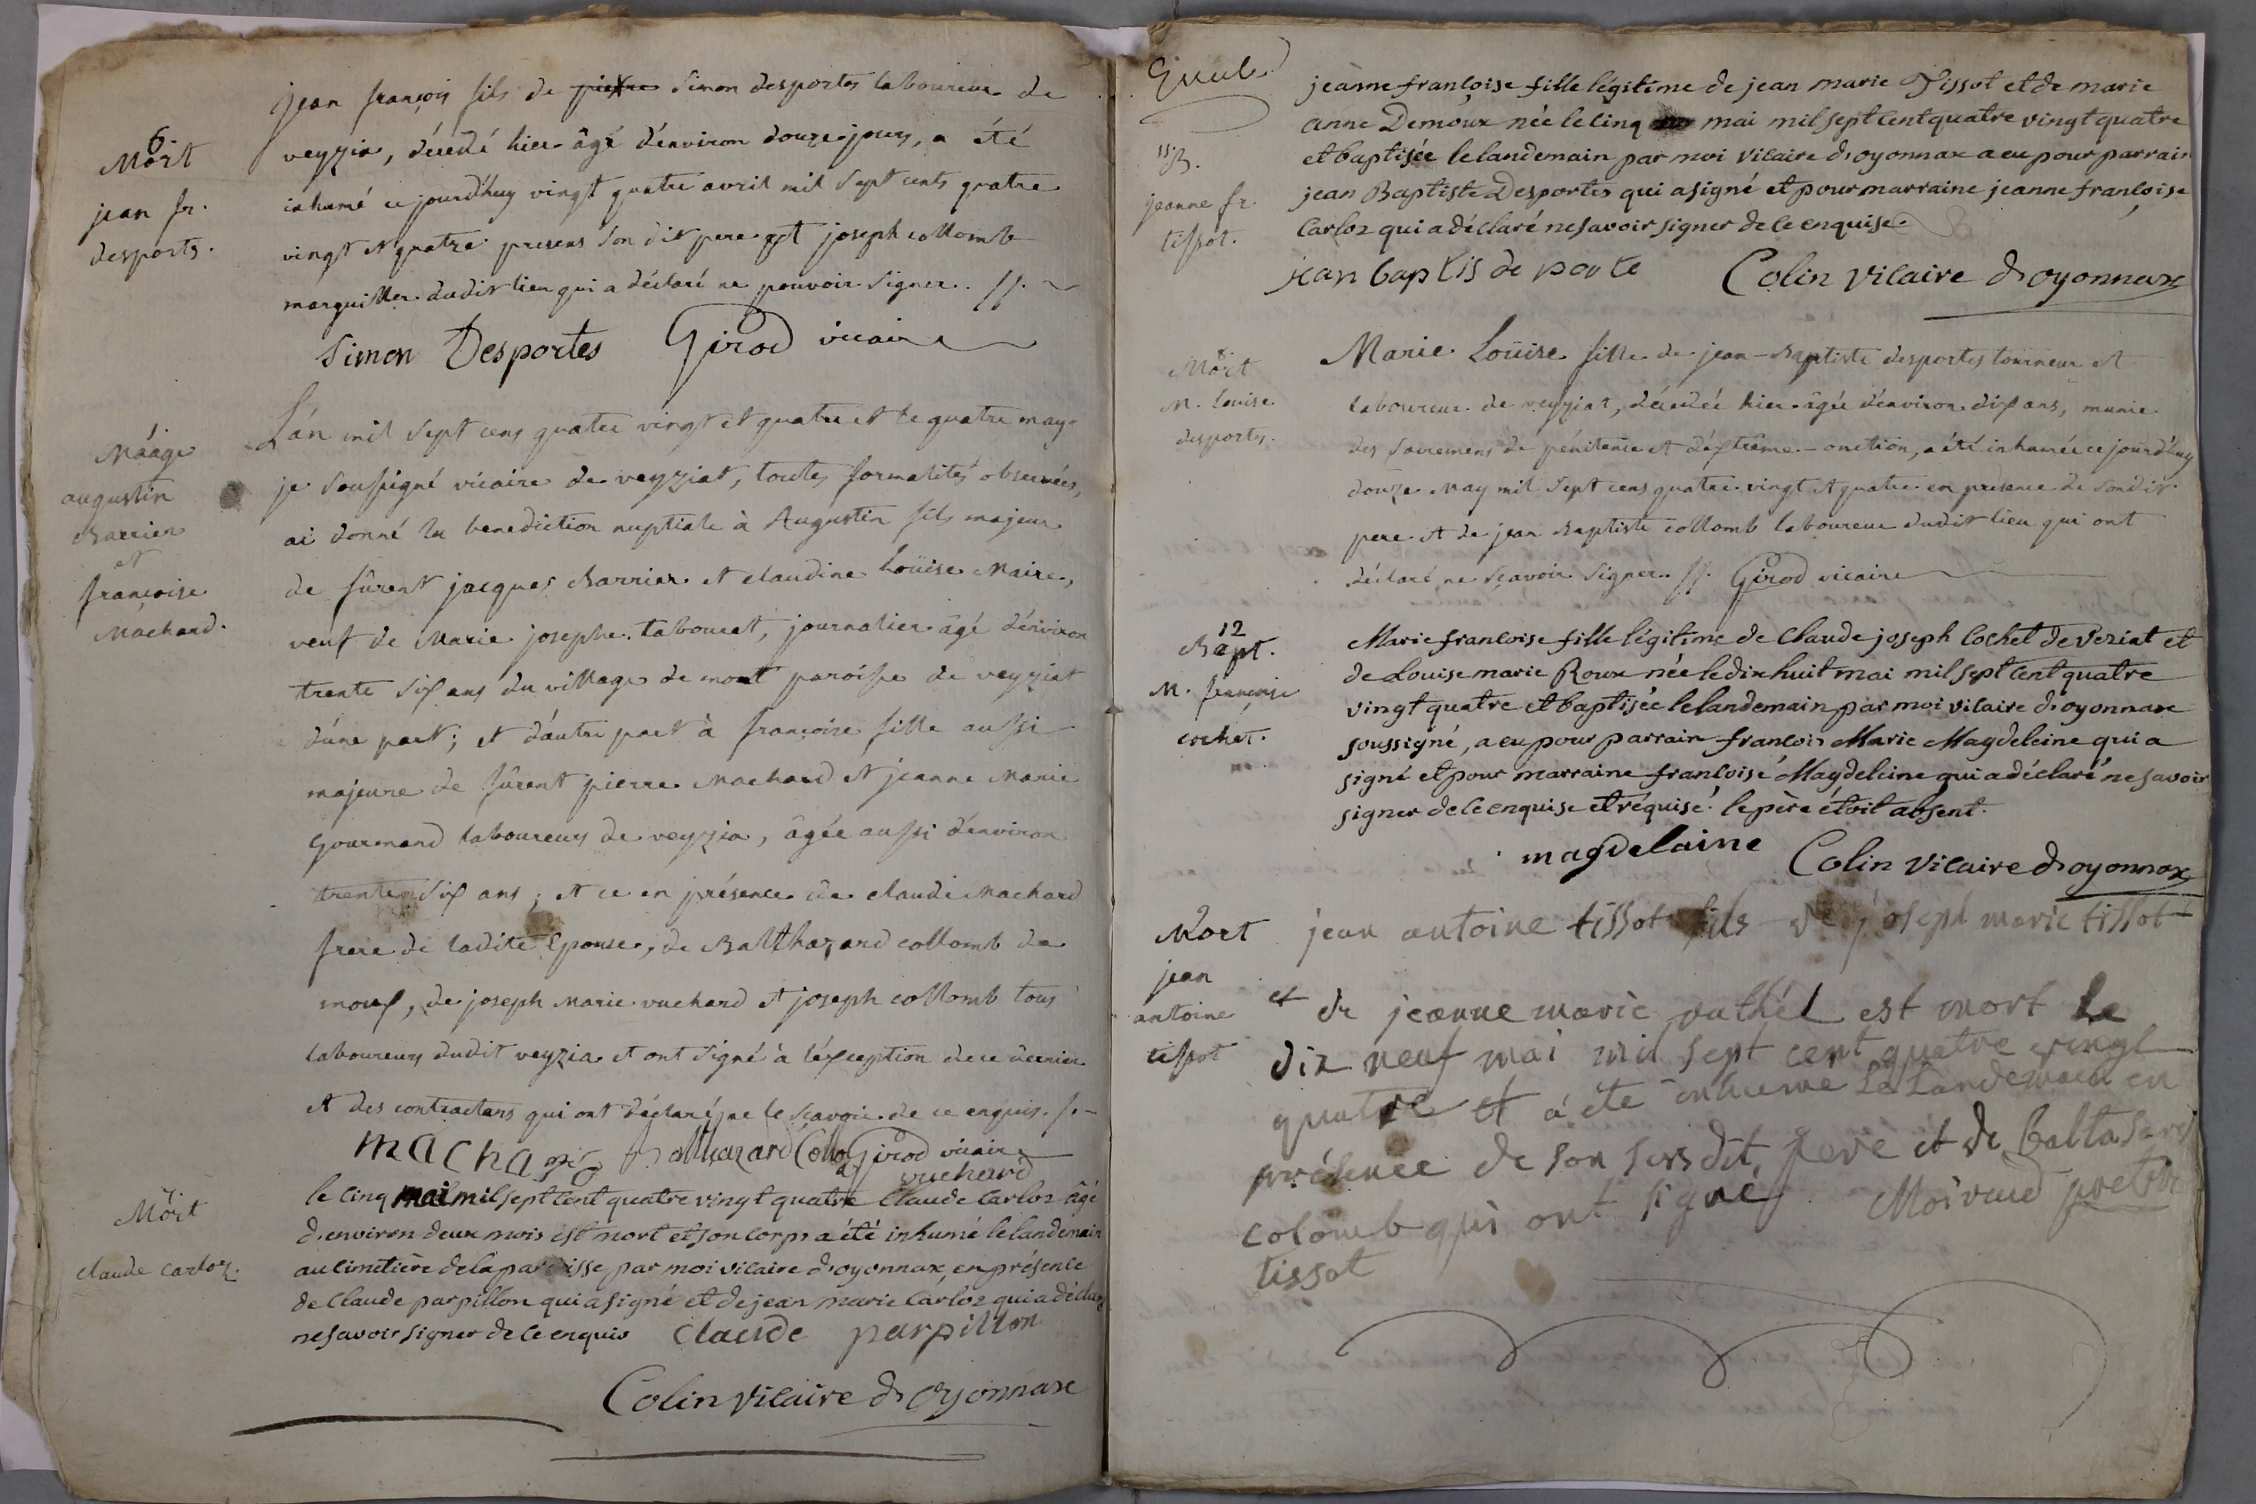 6
Mort
jean fr.
desportes.
jean françois fils de pierre Simon desportes laboureur de
veyzia, décédé hier âgé d'environ douze jours, a été
inhumé ce jourd'huy vingt quatre avril mil sept cents quatre
vingt et quatre presens son dit pere et joseph collomb
marguiller dudit lieu qui a déclaré ne pouvoir signer. //.
Simon Desportes Girod vicaire
Máage
augustin
Barrier
et
françoise
Machard.
L'an mil sept cens quatre vingt et quatre et le quatre may
je soussigné vicaire de veyziat, toutes formalités observées,
ai donné la benediction nuptiale à Augustin fils majeur
de fûrent jacques Barrier et claudine Loüise Maire,
veuf de Marie josephe tabouret, journalier âgé d'environ
trente six ans du village de mont paroisse de veyziat
d'une part; et d'autre part à françoise fille aussi
majeure de fûrent pierre Machard et jeanne Marie
gourmand laboureurs de veyzia, âgée aussi d'environ
trente six ans; et ce en présence de claude Machard
frere de ladite Epouse, de Balthazard collomb de
moux, de joseph Marie vuchard et joseph collomb tous
laboureurs dudit veyzia et ont signé à l'exception de ce dernier
et des contractans qui ont déclaré ne le sçavoir de ce enquis. //-
machard Balthazard Collomb Girod vicaire
vuchard
7
Mort
claude carloz.
le cinq mai mil sept cent quatre vingt quatre Claude Carloz âgé
d'environ deux mois est mort et son corps a été inhumé le landemain
au cimetière de la paroisse par moi vicaire d'oyonnax, en présence
de Claude parpillon qui a signé et de jean marie Carloz qui a déclaré
ne savoir signer de ce enquis claude parpillon
Colin vicaire d'oyonnax
11
B.
jeanne fr.
tissot.
jeanne françoise fille légitime de jean marie Tissot et de marie
anne Demoux née le cinq mai mil sept cent quatre vingt quatre
et baptisée le landemain par moi vicaire d'oyonnax a eu pour parrain
jean Baptiste Desportes qui a signé et pour marraine jeanne françoise
Carloz qui a déclaré ne savoir signer de ce enquise.
jean baptis de porte Colin vicaire d'oyonnax
8
Mort
M. Louise
desportes.
Marie Loüise fille de jean-Baptiste desportes tourneur et
laboureur de veyziat, décédée hier âgée d'environ dix ans, munie
des sacremens de pénitence et d'extrême-onction, a été inhumée ce jourd'huy
douze may mil sept cens quatre vingt et quatre en presence de sondit
pere et de jean Baptiste collomb laboureur dudit lieu qui ont
déclaré ne sçavoir signer. //. Girod vicaire
12
Bapt.
M. françoise
cochet.
Marie françoise fille légitime de Claude joseph Cochet de Veziat et
de Louise marie Roux née le dix huit mai mil sept cent quatre
vingt quatre et baptisée le landemain par moi vicaire d'oyonnax
soussigné, a eu pour parrain françois Marie Magdeleine qui a
signé et pour marraine françoise Magdeleine qui a déclaré ne savoir
signer de ce enquise et réquise. le père étoit absent.
magdelaine Colin vicaire d'oyonnax
9
Mort
jean
antoine
tissot
jean antoine tissot fils de joseph marie tissot
et de jeanne marie est mort le
dix neuf mai mil sept cent quatre vingt
quatre et a été inhumé le Landemain en
présence de son susdit pere et de baltasard
colomb qui ont signé Moiraud pretre
tissot